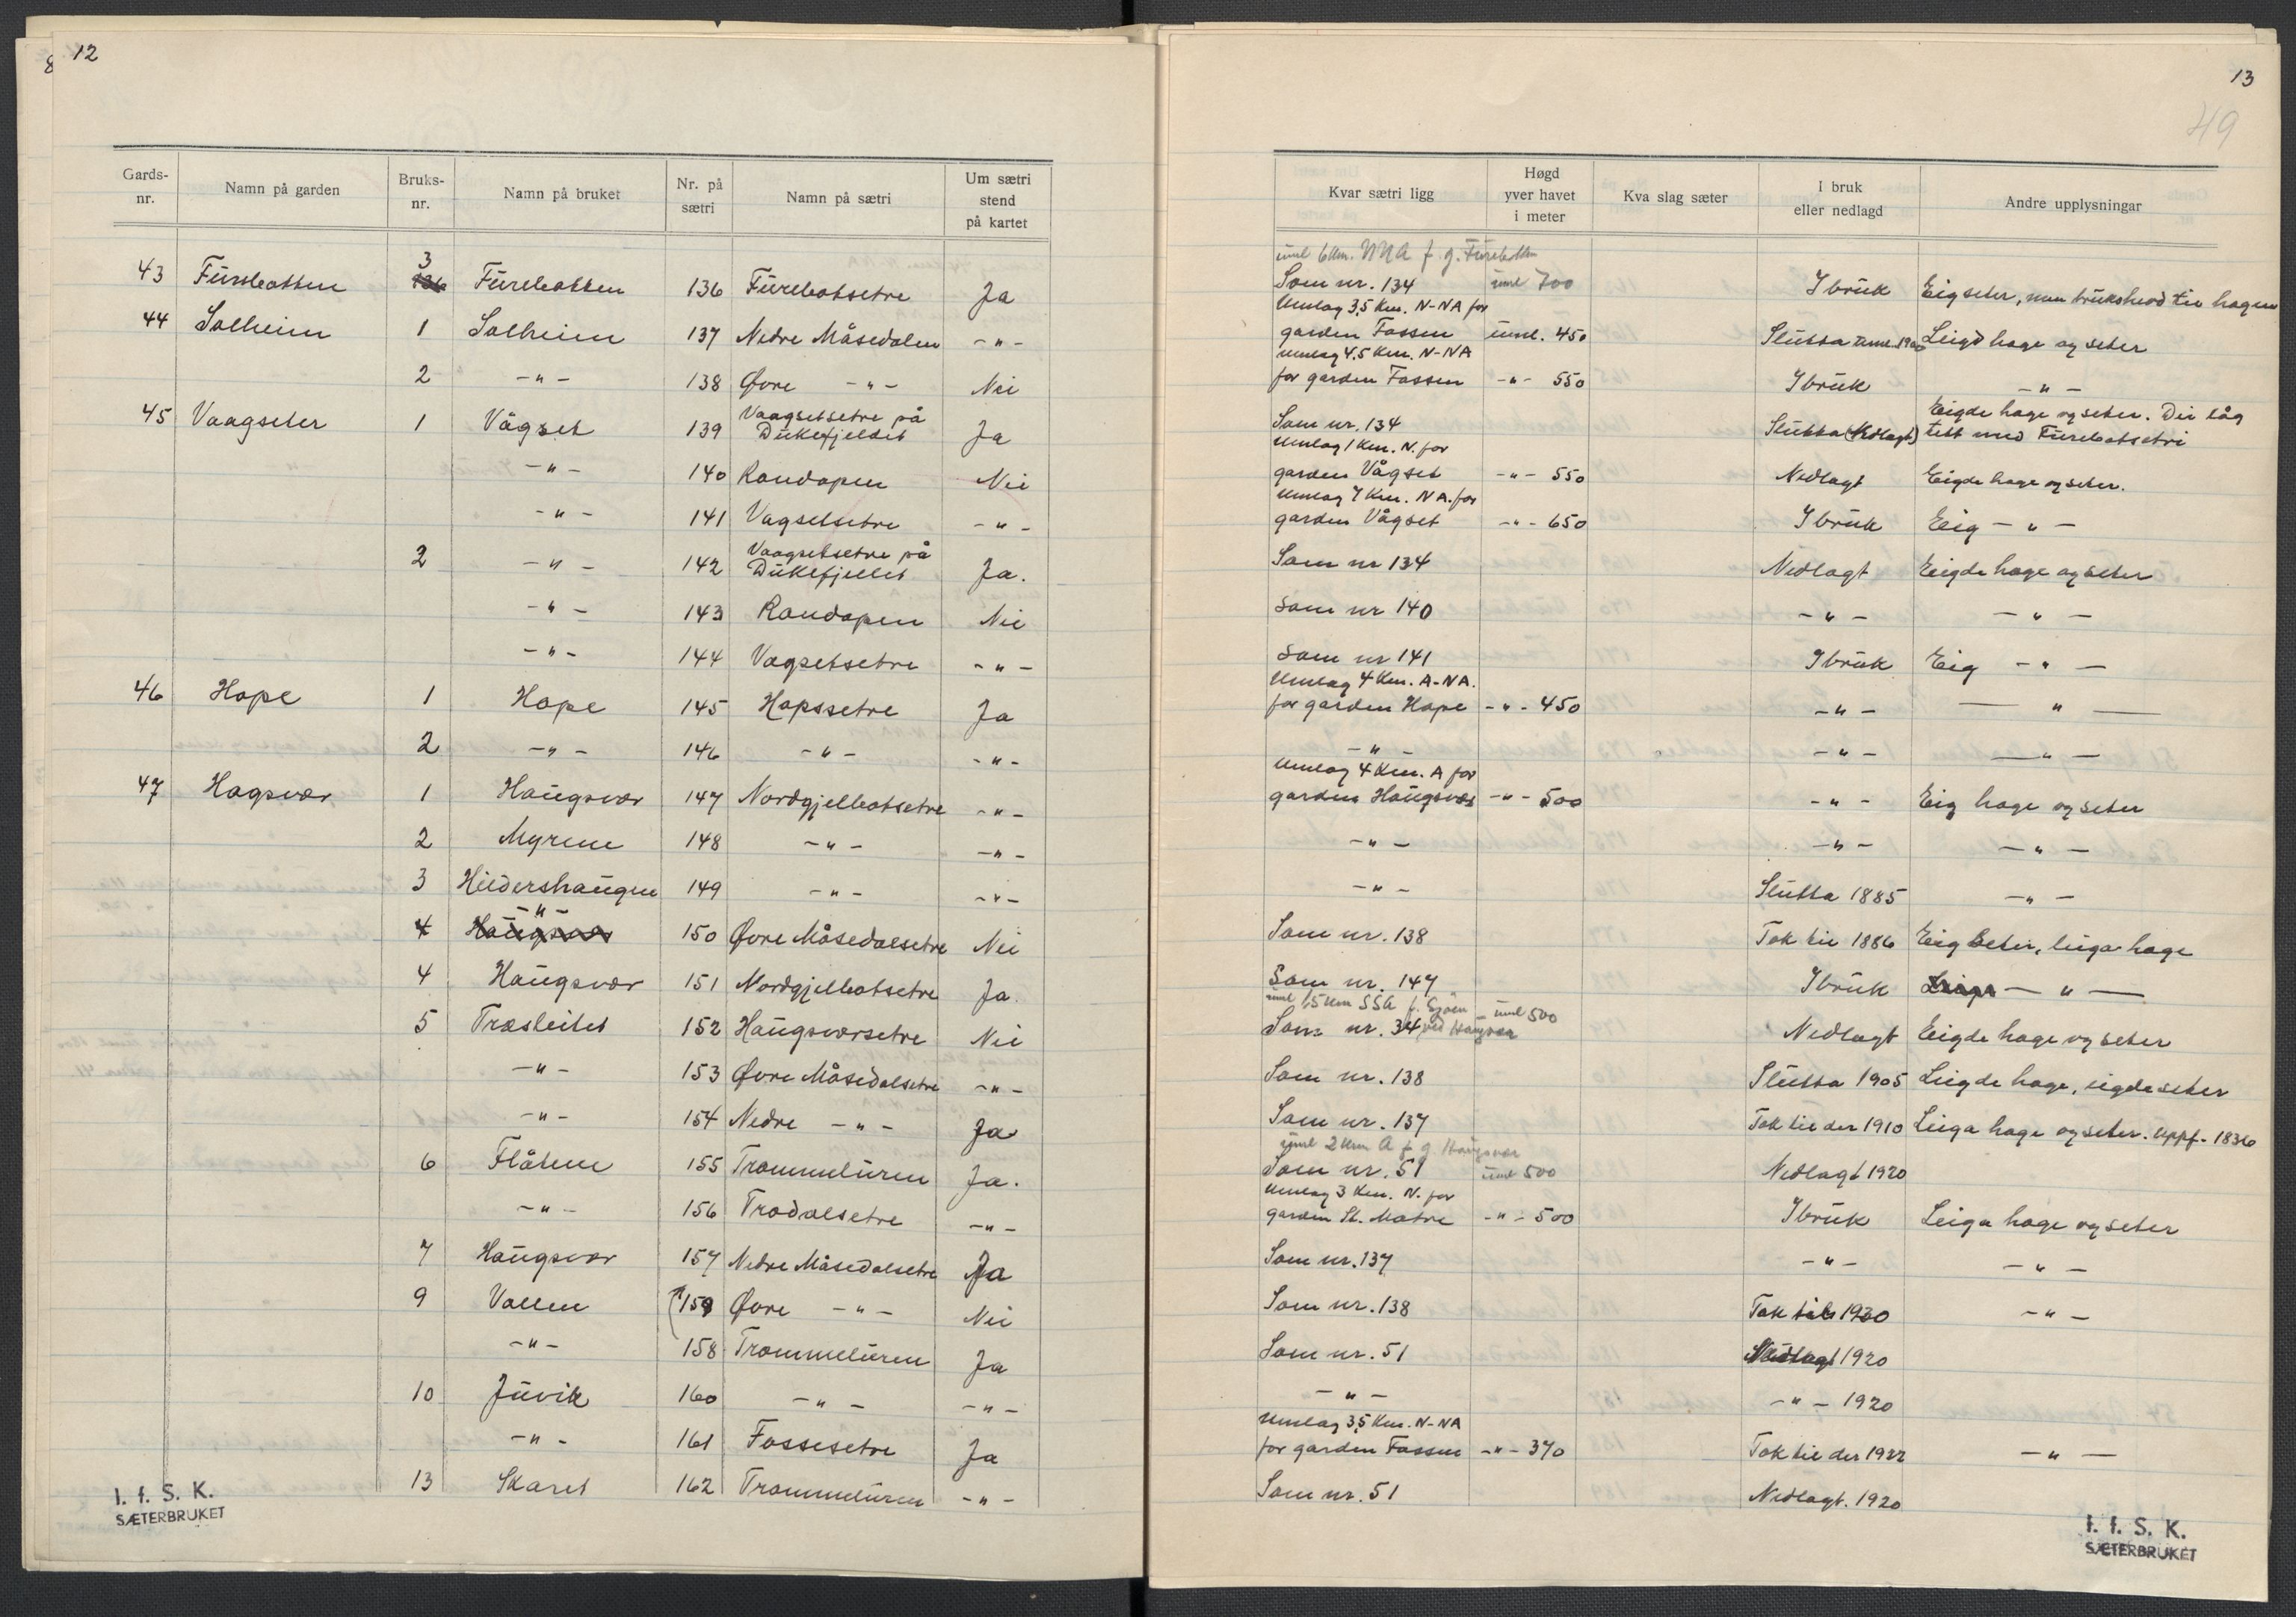 12
Gards-nr. Namn på garden Bruks-nr. Namn på bruket Nr. på sætri Namn på sætri Um sætri stend på kartet
43 Furebotten 3 Furebotten 136 Furebotsetre Ja
44 Solheim 1 Solheim 137 Nedre Måsedalen -"-
2 -"- 138 Øvre -"- Nei
45 Vaagseter 1 Vågset 139 Vaagsetsetre på Dukefjeldet Ja
-"- 140 Rondopen Nei
-"- 141 Vagsetsetre -"-
2 -"- 142 Vaagsetsetre på Dukefjellet Ja.
-"- 143 Rondopen Nei
-"- 144 Vagsetsetre -"-
46 Hope 1 Hope 145 Hopssetre Ja
2 -"- 146 -"- -"-
47 Hagsvær 1 Haugsvær 147 Nordgjelbotsetre -"-
2 Myrene 148 -"- -"-
3 Hildershaugen 149 -"- -"-
4 Haugsvær -"- 150 Øvre Måsedalsetre Nei
4 Haugsvær 151 Nordgjelbotsetre Ja.
5 Træsleitet 152 Haugsværsetre Nei
-"- 153 Øvre Måsedalsetre -"-
-"- 154 Nedre -"- Ja
6 Flåtene 155 Trommeluren Ja.
-"- 156 Trodalsetre -"-
7 Haugsvær 157 Nedre Måsedalsetre Ja
9 Vallen 159 Øvre -"- Nei
-"- 158 Trommeluren Ja
10 Juvik 160 -"- -"-
-"- 161 Fossesetre Ja
13 Skaret 162 Trommeluren -"-
I. f. S. K.
SÆTERBRUKET
13
49
Kvar sætri ligg Høgd yver havet i meter Kva slag sæter I bruk eller nedlagd Andre upplysningar
uml 6 km. NNA f. g. Furebotten
Som nr. 134 uml 700 Ibruk Eig seter, men bruksheod til hagen
Umlag 3,5 Km. N-NA for
garden Fossen uml. 450 Slutta uml. 1900 Leigd hage og seter
Umlag 4.5 Km. N-NA
for garden Fossen -"- 550 Ibruk -"-
Som nr. 134 Slutta (Nedlagt) Eigde hage og seter. Dei låg tett med Furebotsetri
Umlag 1 Km. N. for
garden Vågset -"- 550 Nedlagt Eigde hage og seter.
Umlag 7 Km. NA. for
garden Vågset -"- 650 Ibruk Eig -"-
Som nr 134 Nedlagt Eigde hage og seter
Som nr 140 -"- -"-
Som nr 141 Ibruk Eig -"-
Umlag 4 Km. A-NA.
for garden Hope -"- 450 -"- -"-
-"- -"- -"-
Umlag 4 Km. A for
garden Haugsvær -"- 500 -"- Eig hage og seter
-"- -"- -"-
-"- Slutta 1885 -"-
Som nr. 138 Tok til 1886 Eig seter, leiga hage
Som nr. 147 Ibruk -"-
uml 1,5 km SSA f. Sjøen - uml 500
Som nr. 34 ved Haugsvær Nedlagt Eigde hage og seter
Som nr. 138 Slutta 1905 Leigde hage, eigde seter
Som nr. 137 Tok til der 1910 Leiga hage og seter. Uppf. 1836
uml 2 km A f g Haugsvær
Som nr. 51 uml 500 Nedlagt 1920
Umlag 3 Km. N. for
garden St. Matre -"- 500 Ibruk Leiga hage og seter
Som nr. 137 -"- -"-
Som nr. 138 Tok til 1920 -"-
Som nr. 51 Nedlagt 1920
-"- -"- 1920
Umlag 3,5 Km. N-NA
for garden Fossen -"- 370 Tok til der 1922 -"-
Som nr. 51 Nedlagt. 1920
I. f. S. K.
SÆTERBRUKET